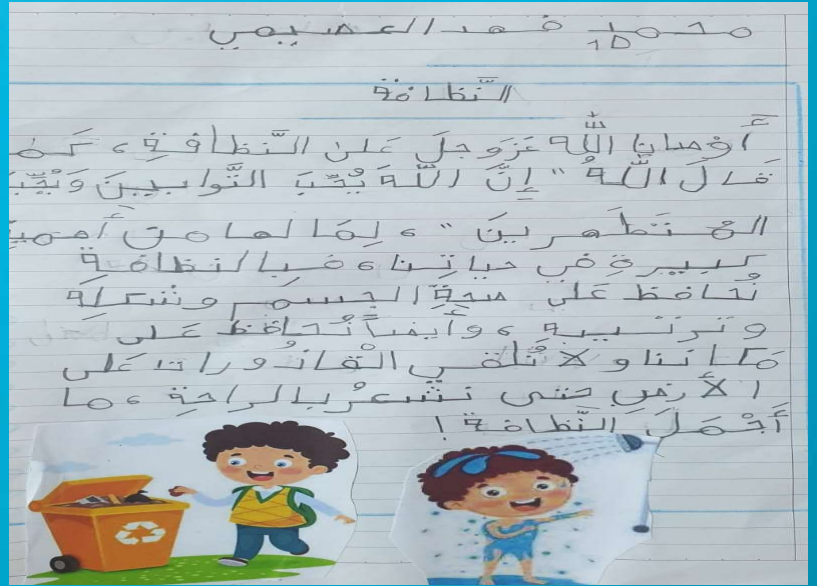 محمد فهد العصيمي
1D
النَّظافة
أَوْصانا اللَّه عَزَوجلَ عَلى النَّظافةِ، كَما
قَالَ اللَّهُ " إِنَّ اللَّهَ يُحِّبَ التَّوابيينَ وَيُحِّبَ
المُتَطَهرينَ "، لِمَا لها من أَهمية
كبيرةٍ في حياتِنا، فبالنظافةِ
نُحافظ عَلى صحةِ الجسمِ وشكلهِ
وترتيبهِ، وأَيضاً نُحافظ عَلى
مَكاننا ولا نُلقي القاذورات عَلى
الأَرض حتى نشعرُ بالراحةِ، ما
أَجْملَ النَّظافة!